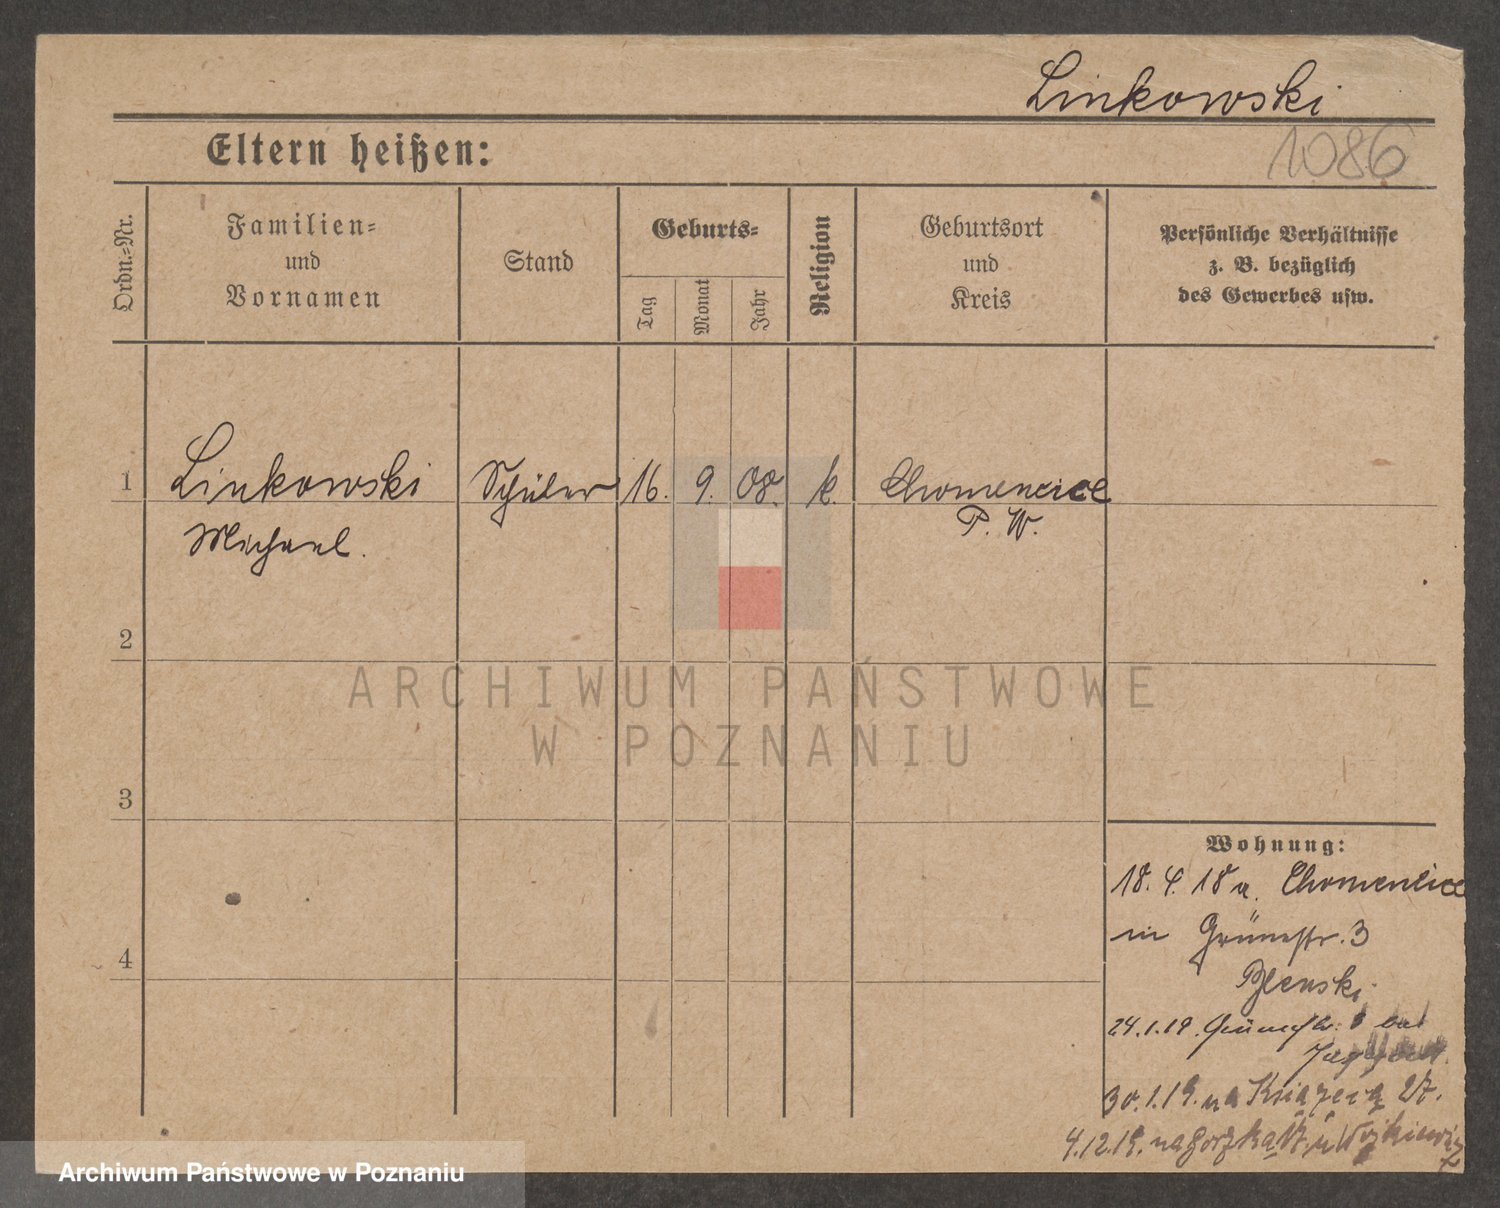 Linkowski
1086
Eltern heißen:
Ordn.-Nr.
Familien-
und
Vornamen
Stand
Geburts-
Tag
Monat
Jahr
Religion
Geburtsort
und
Kreis
Persönliche Verhältnisse
z. B. bezüglich
des Gewerbes usw.
1 Linkowski Schüler 16. 9. 08. k. Chomencice
Michael. P. W.
2
ARCHIWUM PAŃSTWOWE
W POZNANIU
3
Wohnung:
18. 4. 18 a. Chomencice
in Grünestr. 3
4
24.1.19. Grünestr.
30.1.19. na 27.
4.12.19. na
Archiwum Państwowe w Poznaniu